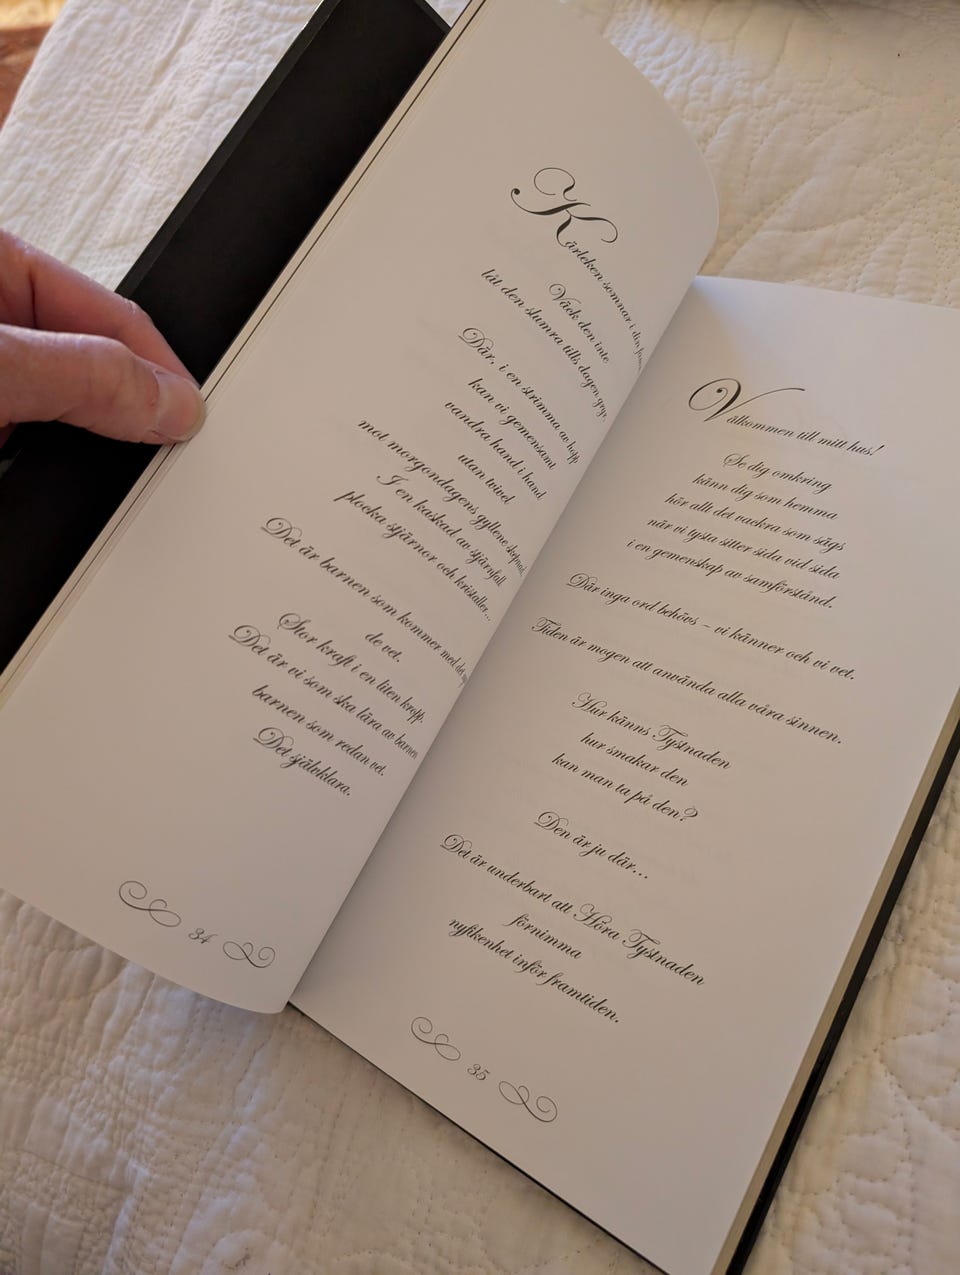 Kärleken somnar i din
Väck den inte
låt den slumra tills dagen gryr.
Där, i en strimma av hopp
kan vi gemensamt
vandra hand i hand
utan tvivel
mot morgondagens gyllene
I en kaskad av stjärnfall
plocka stjärnor och kristaller...
Det är barnen som kommer med det
de vet.
Stor kraft i en liten kropp.
Det är vi som ska lära av barnen
barnen som redan vet.
Det självklara.
34
Välkommen till mitt hus!
Se dig omkring
känn dig som hemma
hör allt det vackra som sägs
när vi tysta sitter sida vid sida
i en gemenskap av samförstånd.
Där inga ord behövs – vi känner och vi vet.
Tiden är mogen att använda alla våra sinnen.
Hur känns Tystnaden
hur smakar den
kan man ta på den?
Den är ju där...
Det är underbart att Höra Tystnaden
förnimma
nyfikenhet inför framtiden.
35